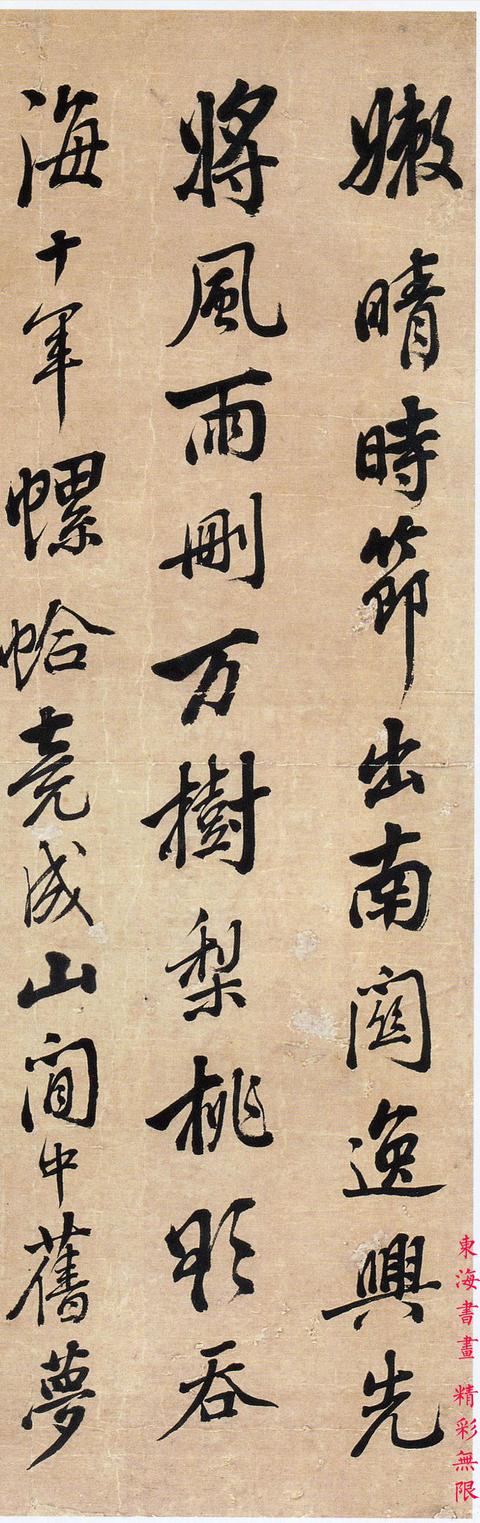 嫩晴時節出南關逸興先
將風雨刪万樹梨桃欲吞
海十年螺蛤竟成山閒中舊夢
東海書畫 精彩無限